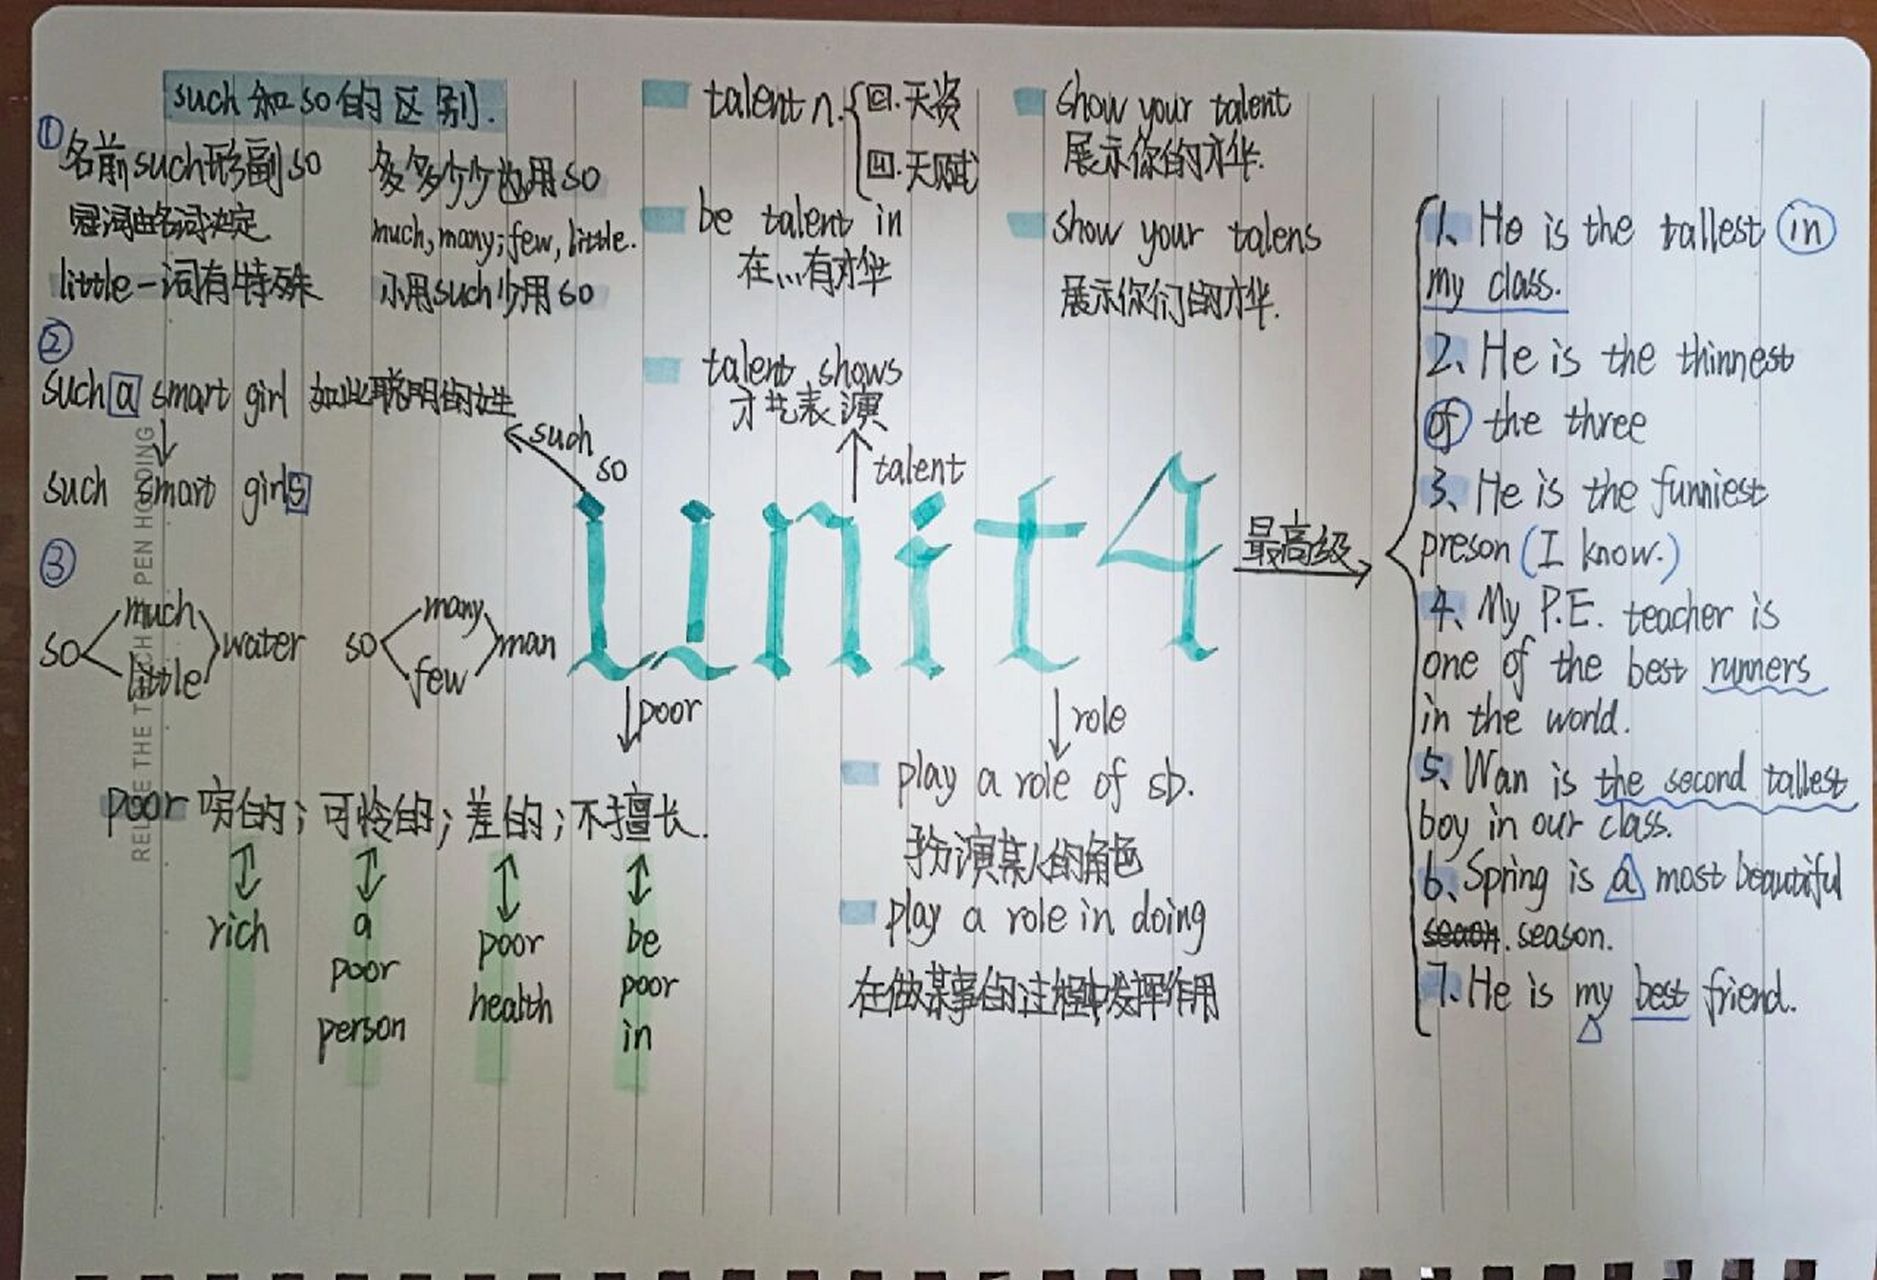 such 和 so 的区别.
①
名前such形副so
冠词由名词决定
little一词有特殊
多多少少也用so
much, many; few, little.
小用such少用so
②
such a smart girl 如此聪明的女生
such smart girls
③
so much little water
so many few man
such
so
talent n. 天资
天赋
be talent in
在...有才华
talent shows
才艺表演
talent
show your talent
展示你的才华.
show your talens
展示你们的才华.
unit 4
最高级
1、He is the tallest in
my class.
2、He is the thinnest
of the three
3、He is the funniest
preson (I know.)
4、My P.E. teacher is
one of the best runners
in the world.
5、Wan is the second tallest
boy in our class.
6、Spring is a most beautiful
season.
7、He is my best friend.
poor
poor 穷的; 可怜的; 差的; 不擅长.
rich
a
poor
person
poor
health
be
poor
in
role
play a role of sb.
扮演某人的角色
play a role in doing
在做某事的过程中发挥作用